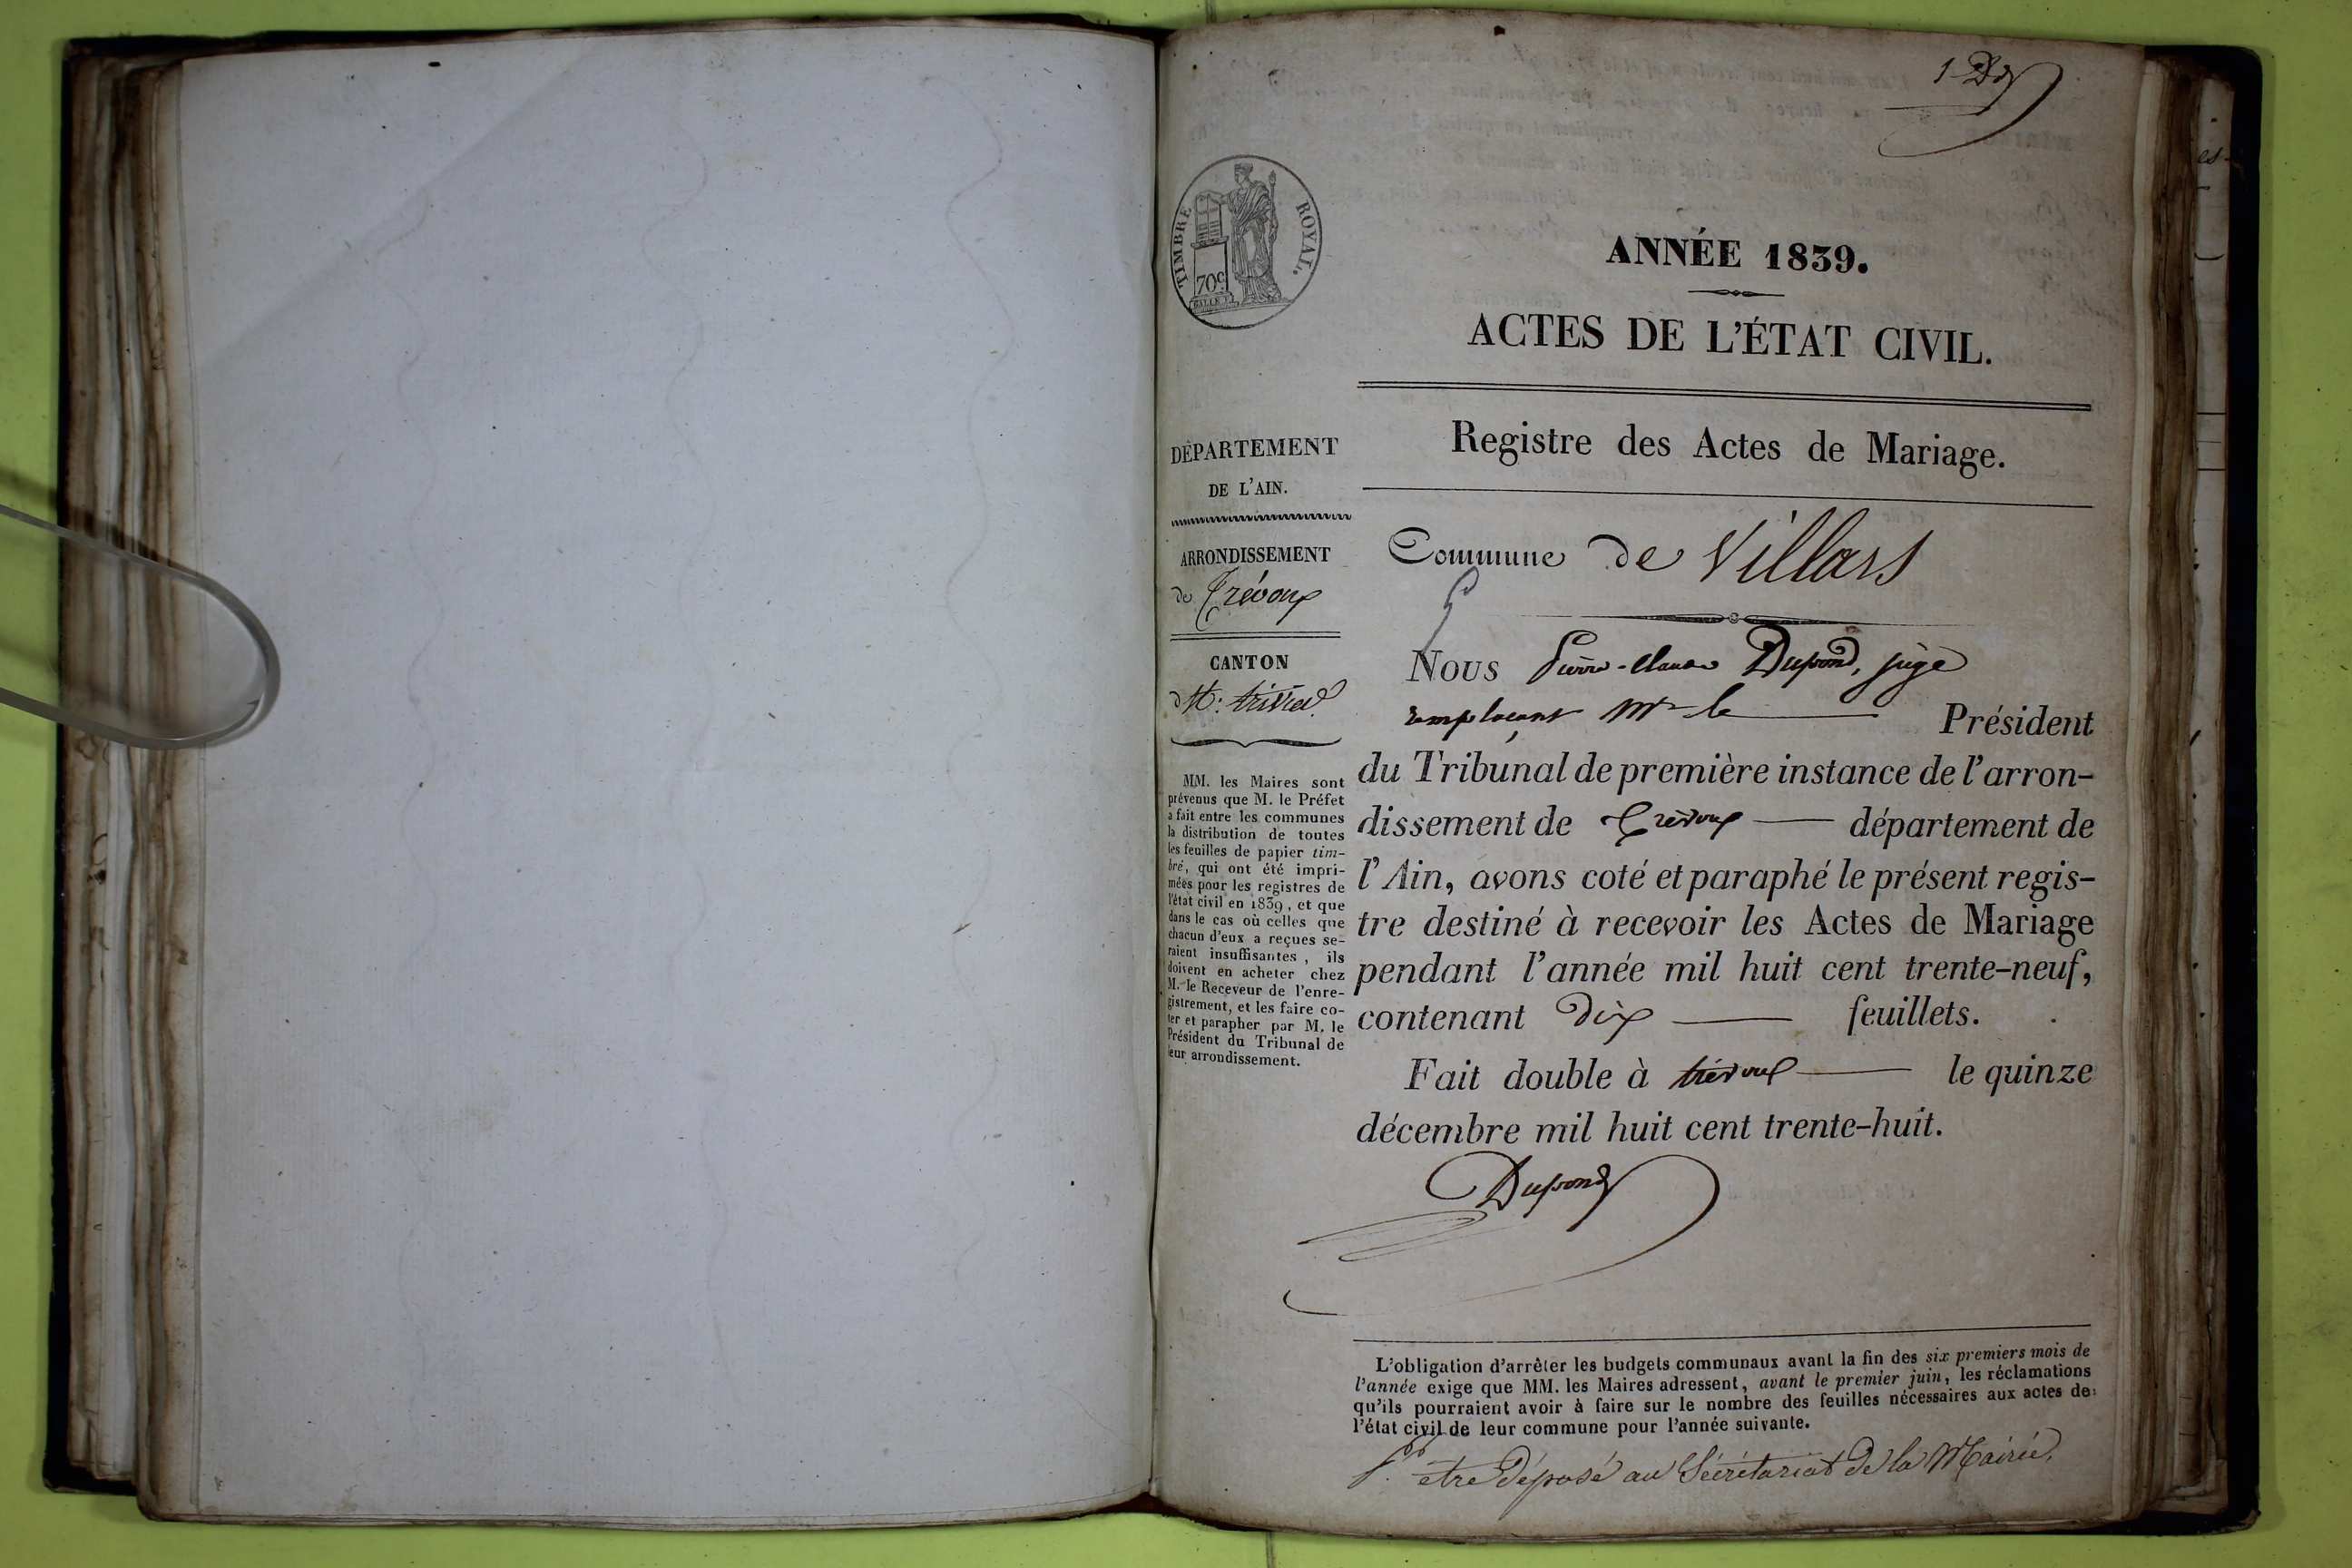 1 Dd
TIMBRE ROYAL.
70 c.
ANNÉE 1839.
ACTES DE L'ÉTAT CIVIL.
Registre des Actes de Mariage.
DÉPARTEMENT
DE L'AIN.
ARRONDISSEMENT
de Trévoux
CANTON
MM. les Maires sont
prévenus que M. le Préfet
a fait entre les communes
la distribution de toutes
les feuilles de papier tim-
bré, qui ont été impri-
mées pour les registres de
l'état civil en 1839, et que
dans le cas où celles que
chacun d'eux a reçues se-
raient insuffisantes, ils
doivent en acheter chez
M. le Receveur de l'enre-
gistrement, et les faire co-
ter et parapher par M. le
Président du Tribunal de
leur arrondissement.
Commune de Villars
Nous Pierre-Claude Dupond, juge
remplaçant Mr le Président
du Tribunal de première instance de l'arron-
dissement de Trévoux département de
l'Ain, avons coté et paraphé le présent regis-
tre destiné à recevoir les Actes de Mariage
pendant l'année mil huit cent trente-neuf,
contenant dix feuillets.
Fait double à trévoux le quinze
décembre mil huit cent trente-huit.
Dupond
L'obligation d'arrêter les budgets communaux avant la fin des six premiers mois de
l'année exige que MM. les Maires adressent, avant le premier juin, les réclamations
qu'ils pourraient avoir à faire sur le nombre des feuilles nécessaires aux actes de
l'état civil de leur commune pour l'année suivante.
Pr être déposé au Secrétariat de la Mairie.